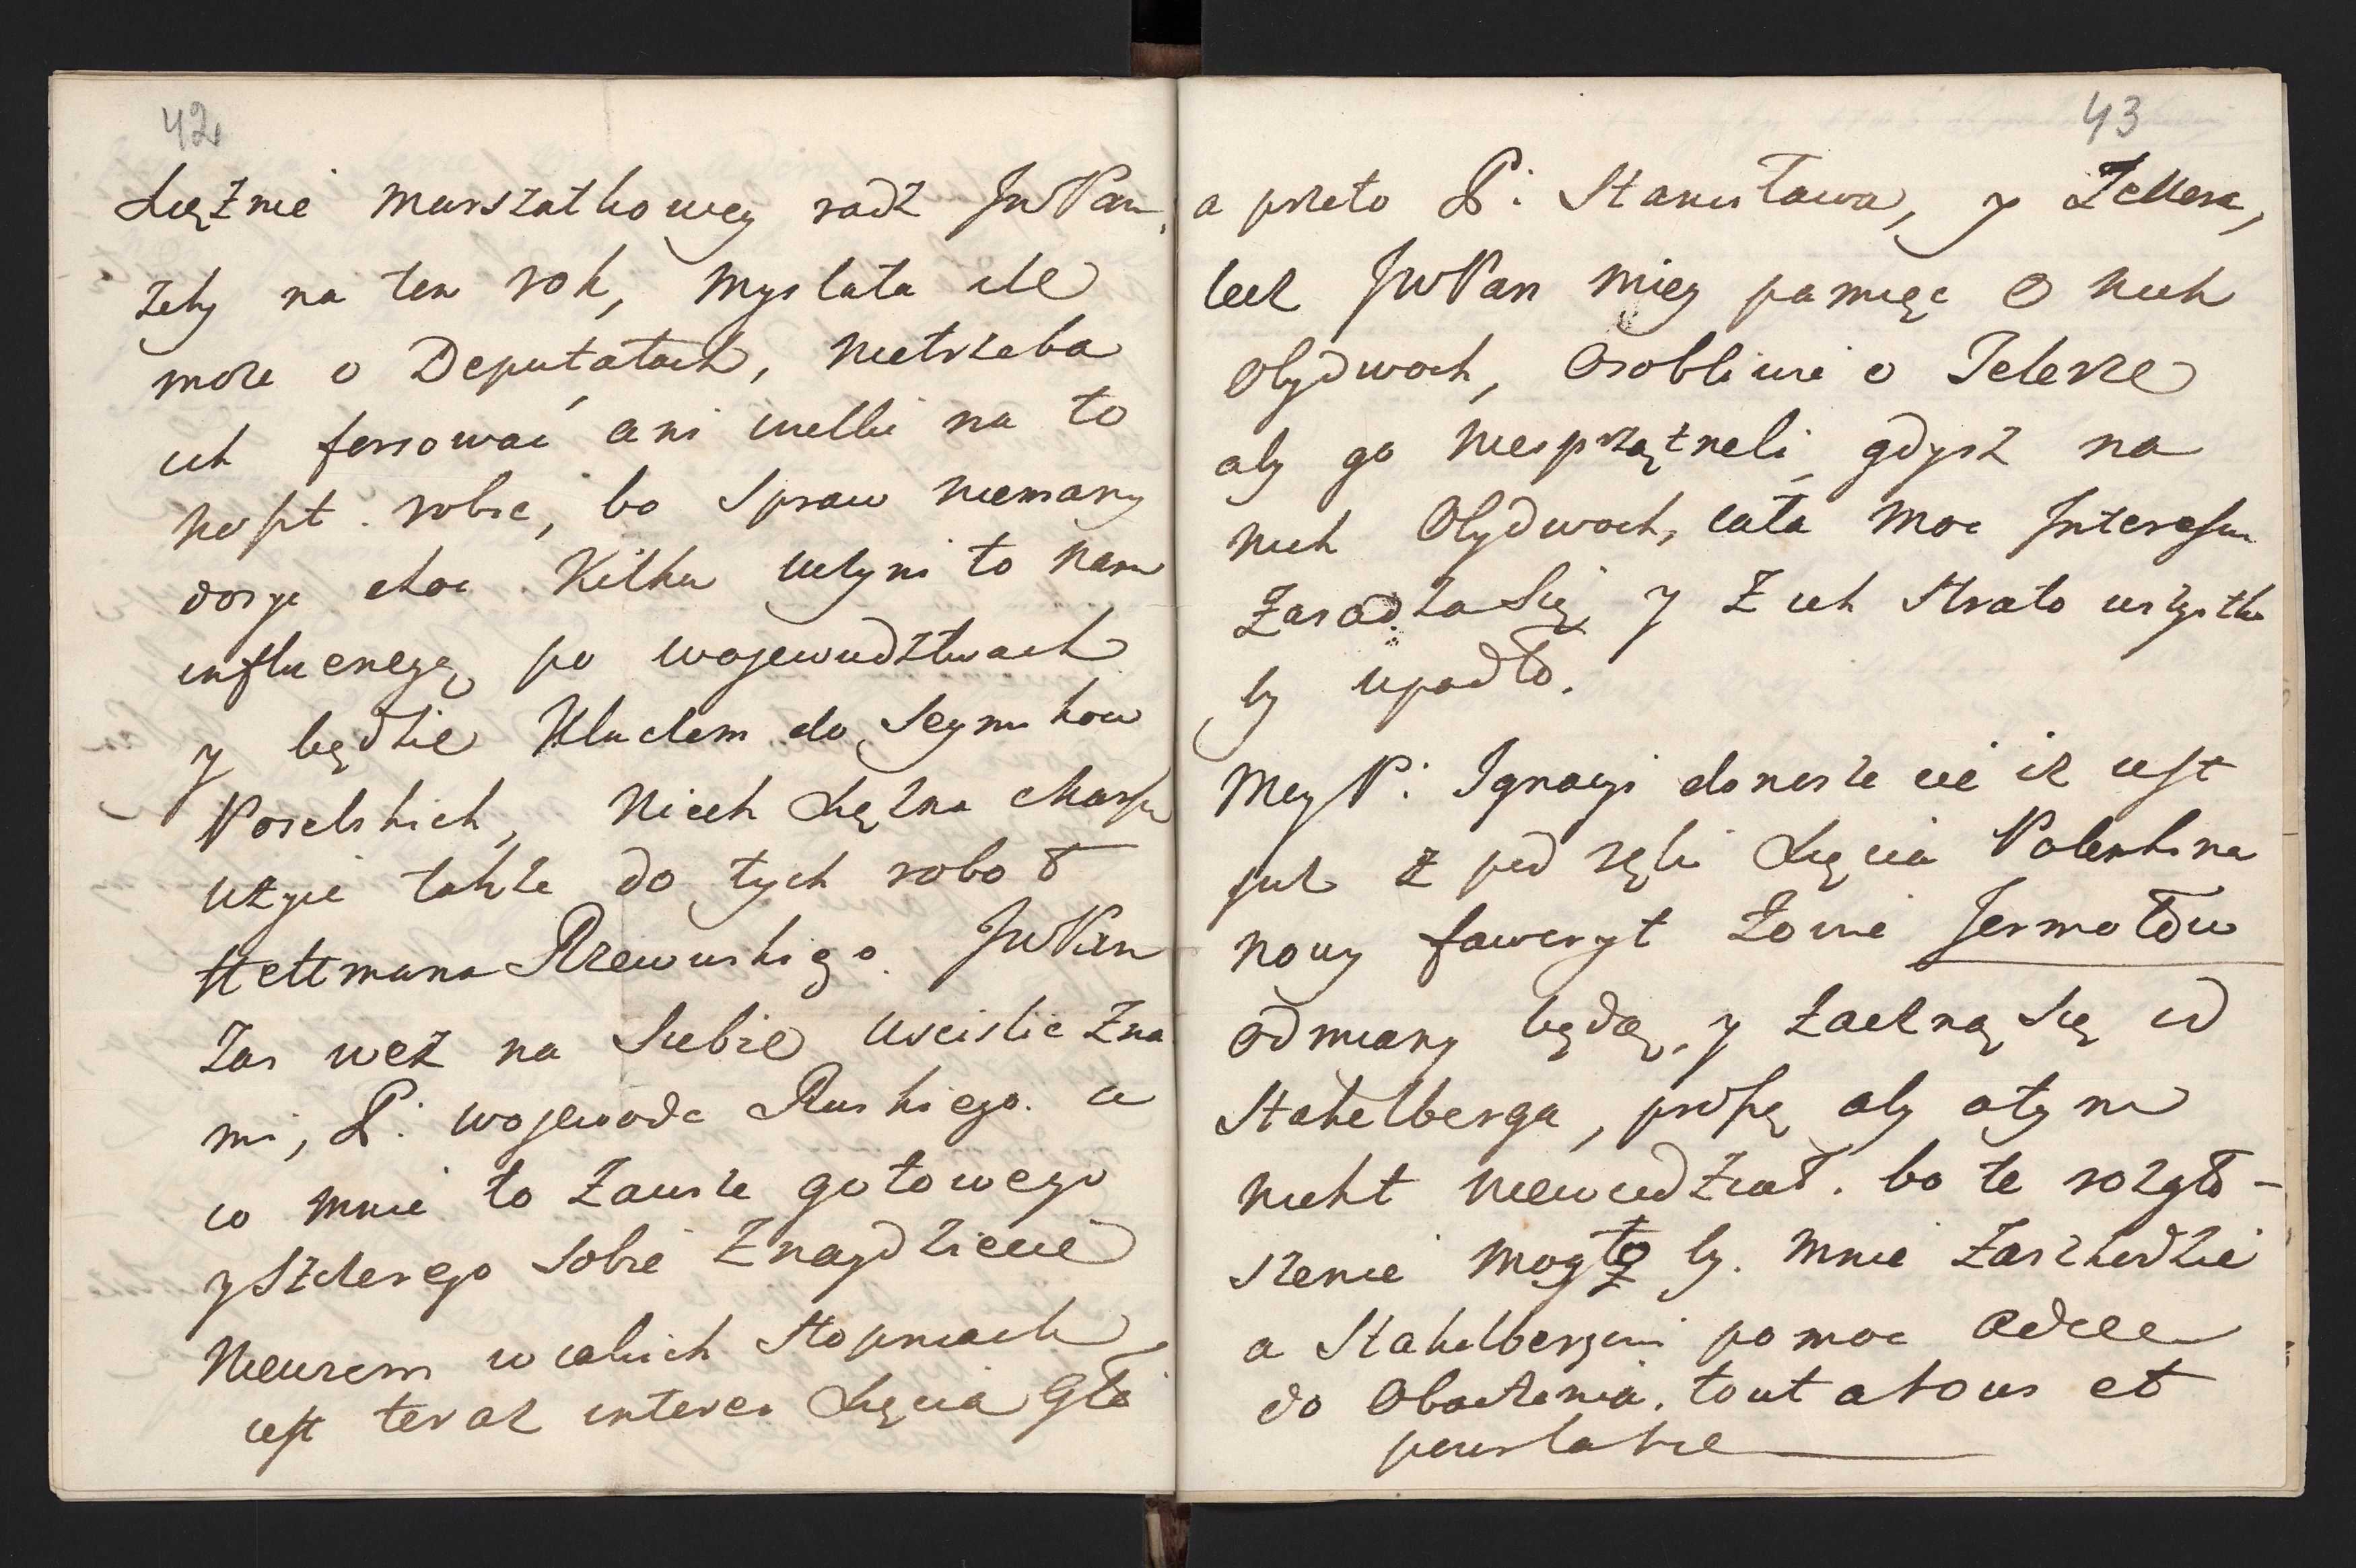 42
Xięznie Marszałkowey radz JWPan,
zeby na ten rok, myslała ile
może o Deputatach, nietrzeba
ich forsowac ani wielki na to
koszt robic, bo Spraw niemamy
dosyc choc kilku uczyni to nam
influencyą po wojewudztwach
y będzie Kluczem do Seymikow
Poselskich, Niech Xiężna Marsz
użyie także do tych robot
Hettmana Rzewuskiego. JWPan
Zas weż na Siebie uscislic Zna
mi, P: wojewode Ruskiego. a
co mnie to Zawsze gotowego
y Szczerego Sobie Znaydziecie
Niewiem w iakich Stopniach
iest teraz interes Xięcia Gło
43
a przeto P: Stanisława, y Zellera,
lecz JWPan miey pamięc o nich
Obydwoch, Osobliwie o Telerze
aby go niesprzątneli, gdysz na
nich Obydwoch, cała moc Interessu
Zasadza Się, y Z ich Strato wszystko
by upadło.
Mcy P: Ignacyi donosze cie iz iest
już z pod ręki Xięcia Potemkina
nowy faworyt Zowie Jermołow
Odmiany będą, y Zaczną Się od
Stakelberga, proszę aby otym
nicht niewiedział. bo te rozgło-
szenie mogło by. mnie Zaszkodzic
a Stakelbergowi pomoc Adieu
do Obaczenia. tout a vous et
pour la vie